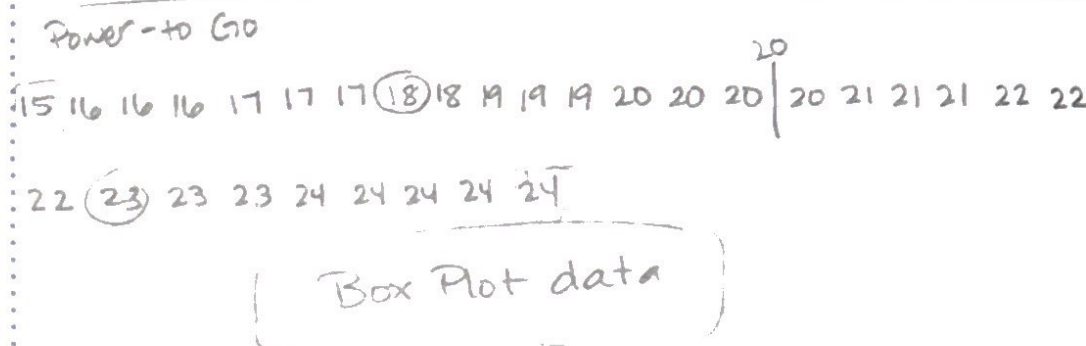 Power-to Go
20
15 16 16 16 17 17 17 18 18 19 19 19 20 20 20 20 21 21 21 22 22
22 23 23 23 24 24 24 24 24
Box Plot data